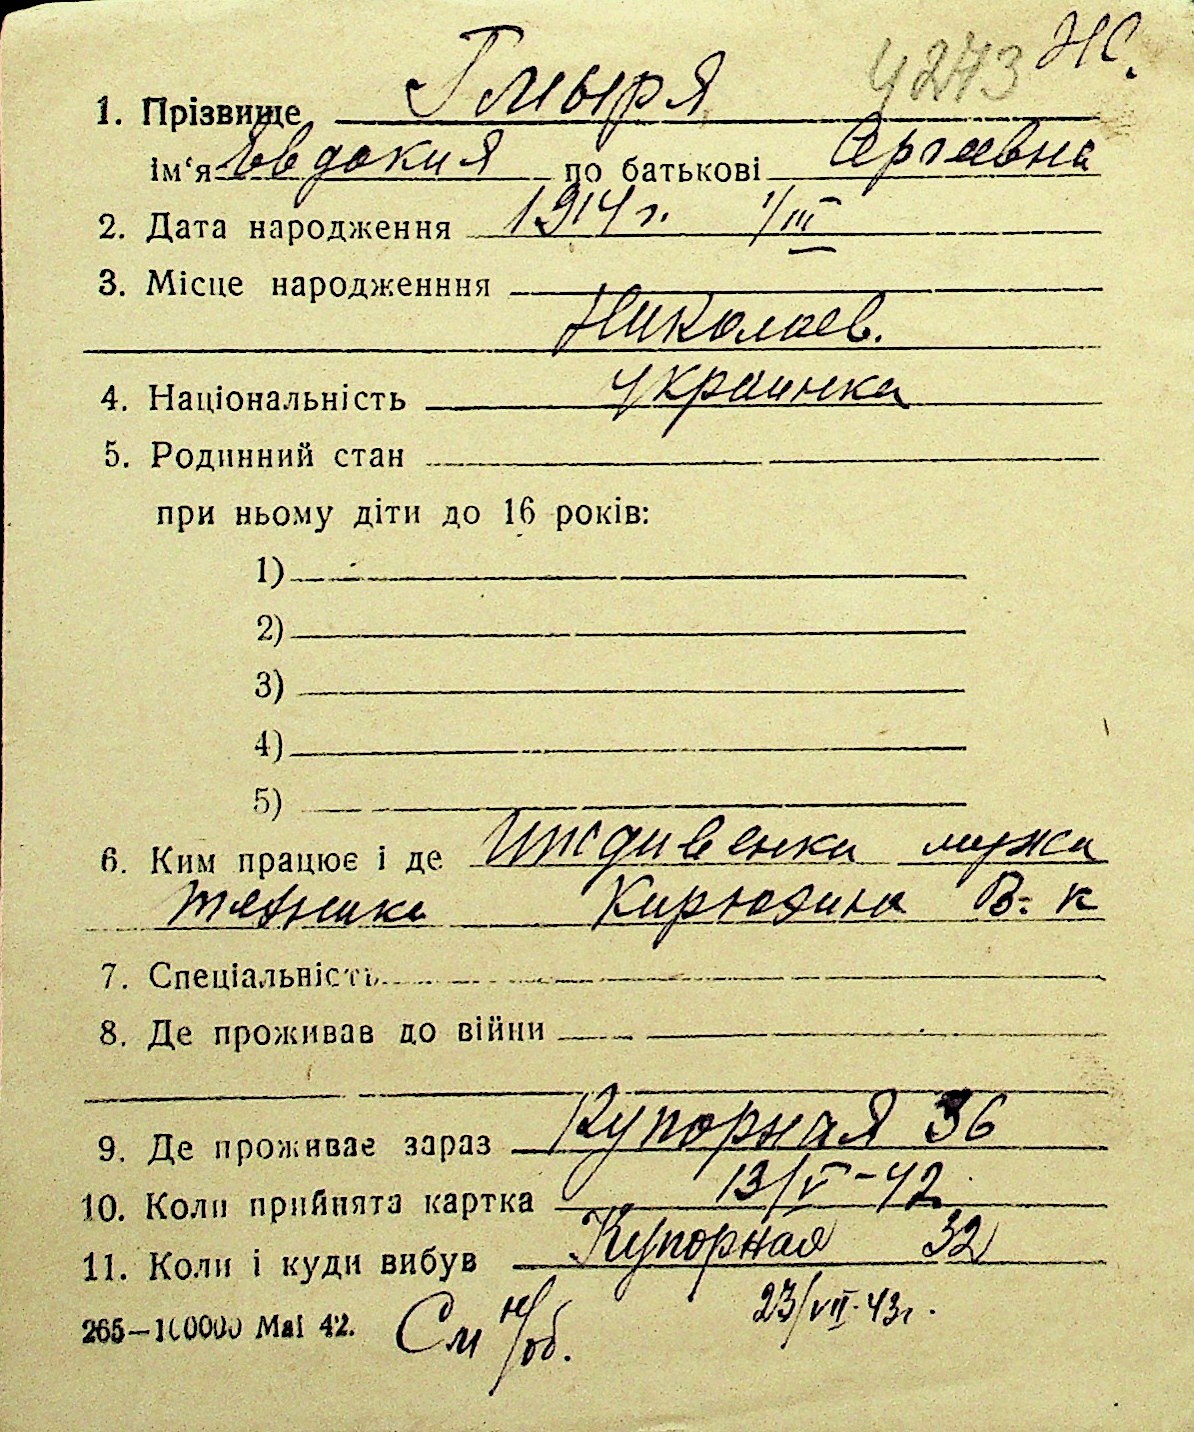 4273 ЖС.
1. Прізвище Гмыря
ім‘я Евдокия по батькові Сергеевна
2. Дата народження 1914 г. 1/III
3. Місце народженння
Николаев.
4. Національність украинка
5. Родинний стан
при ньому діти до 16 років:
1)
2)
3)
4)
5)
6. Ким працює і де Иждивенка мужа
В. К
7. Спеціальність
8. Де проживав до війни
9. Де проживає зараз Купорная 36
10. Коли прийнята картка 13/V-42
11. Коли і куди вибув Купорная 32
265—100000 Mai 42. См н/об. 23/VII-43г.